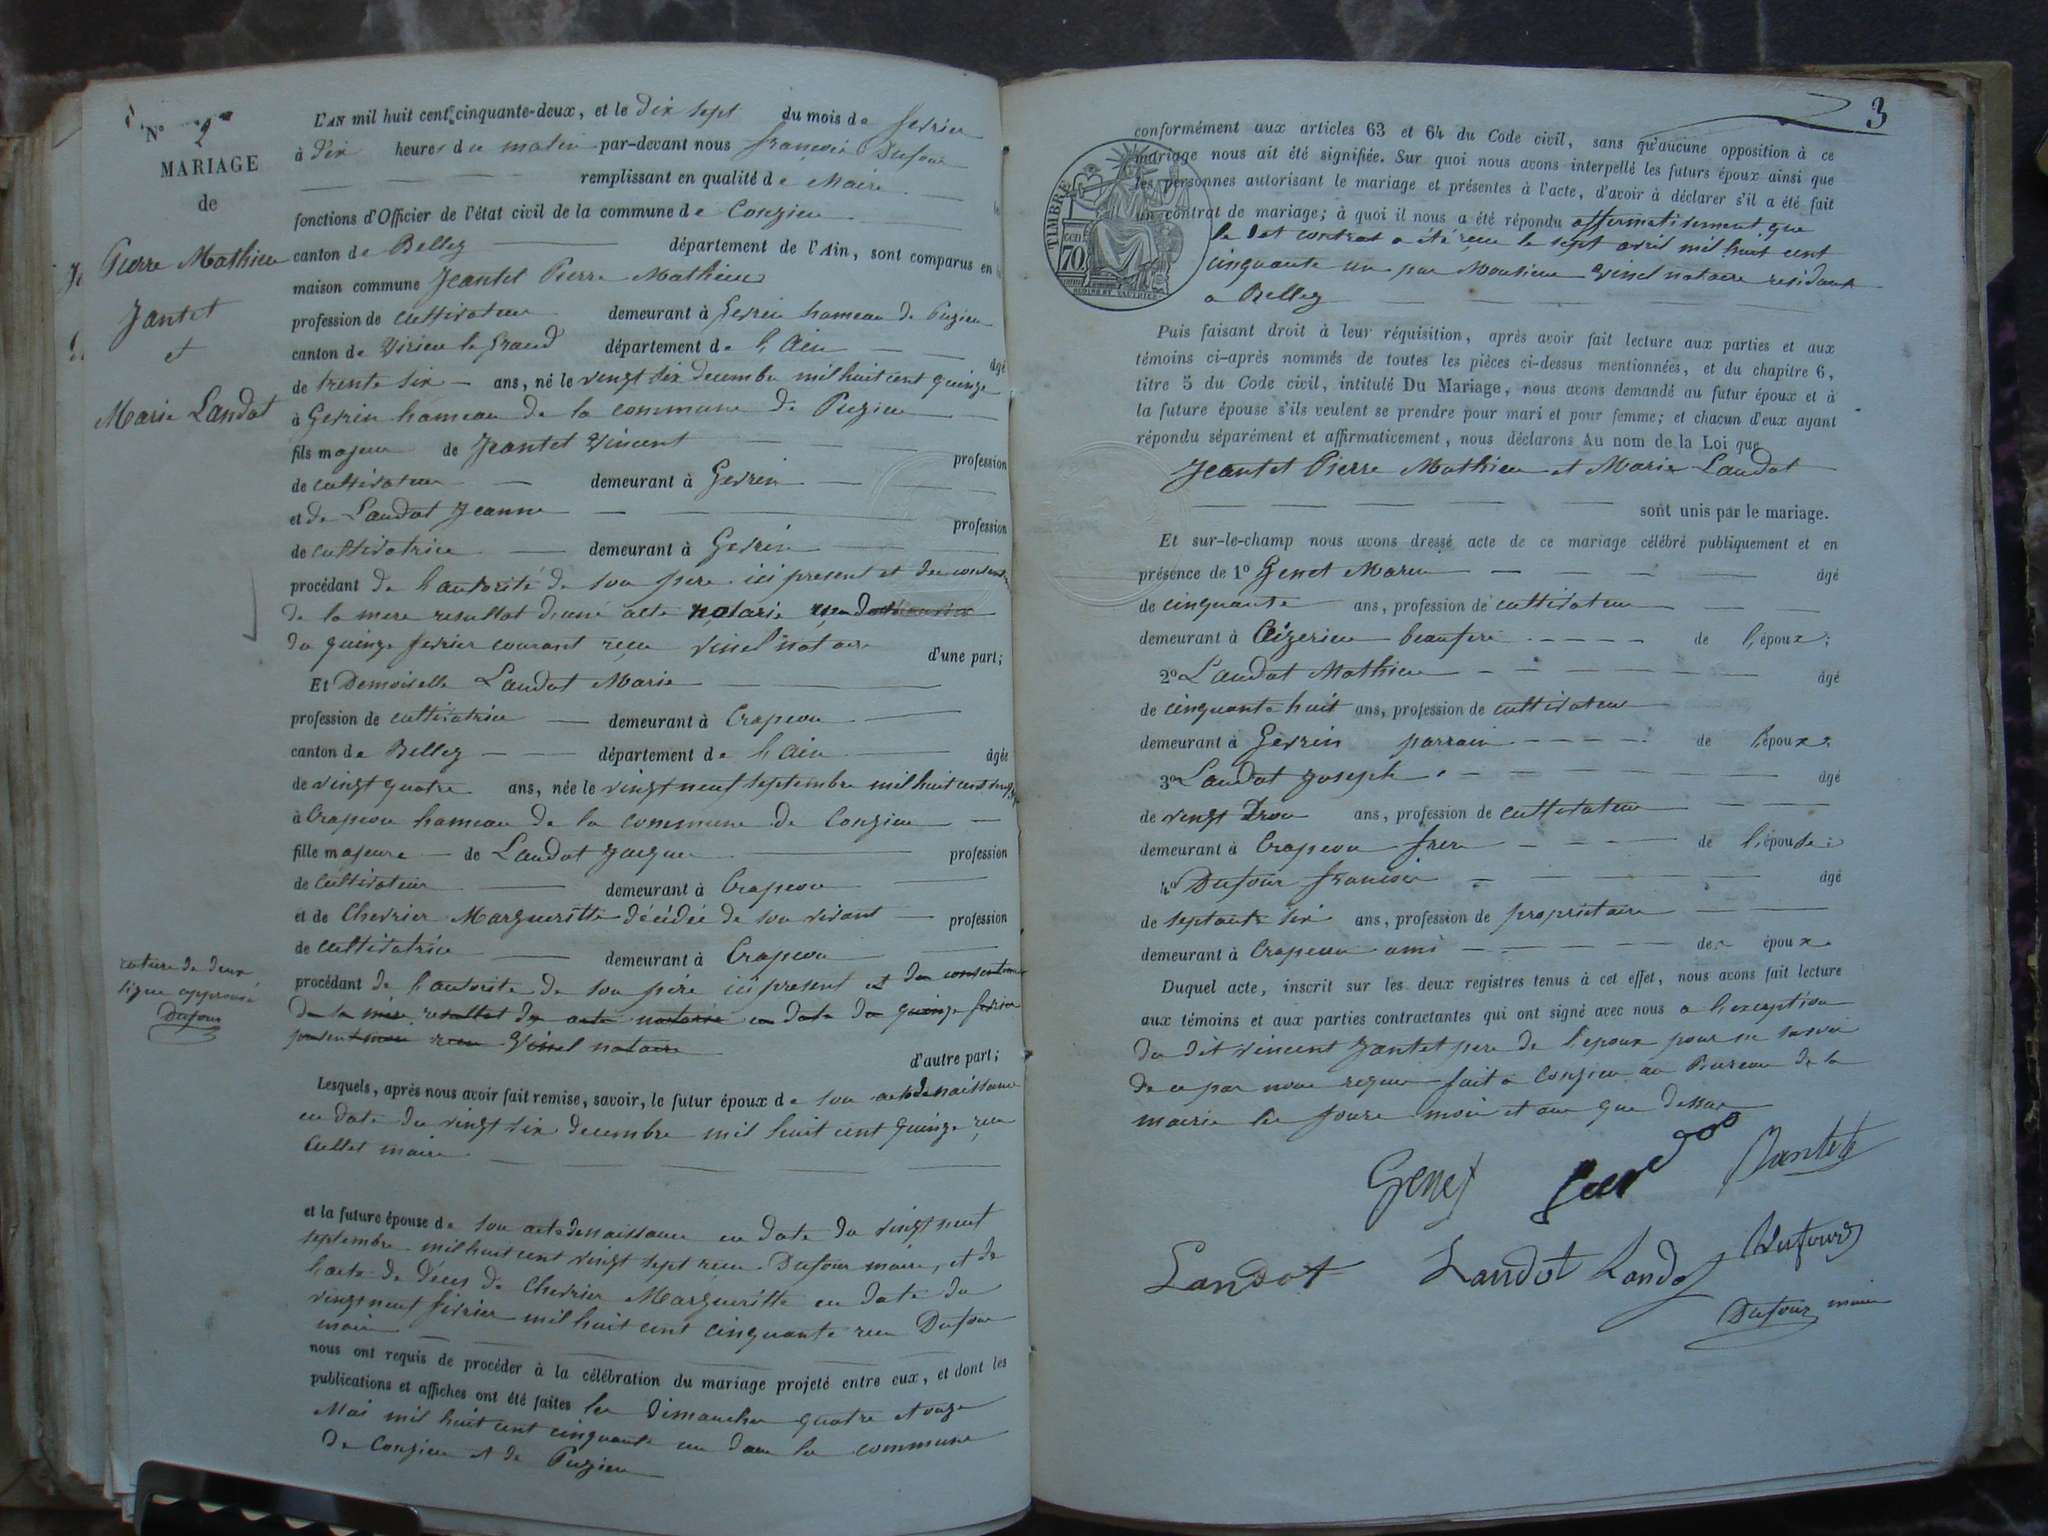 N° 2
MARIAGE
de
Pierre Mathieu
Jantet
et
Marie Landot
L'AN mil huit cent cinquante-deux, et le dix sept du mois de fevrier
à dix heures du matin par-devant nous françois Dufour
remplissant en qualité de Maire
fonctions d'Officier de l'état civil de la commune de Conzieu
canton de Belley département de l'Ain, sont comparus en
maison commune Jeantet Pierre Mathieu
profession de cultivateur demeurant à Gevrin hameau de Puzieu
canton de Virieu le Grand département de l'Ain âgé
de trente six ans, né le vingt six decembre mil huit cent quinze
à Gevrin hameau de la commune de Puzieu
fils majeur de Jeantet Vincent profession
de cultivateur demeurant à Gevrin
et de Landot Jeanne profession
de cultivatrice demeurant à Gevrin
procédant de l'autorité de son pere ici present et du
de la mere resultat d'une acte notarié
du quinze fevrier courant reçu Vinel notaire d'une part;
Et Demoiselle Landot Marie
profession de cultivatrice demeurant à Crapeou
canton de Belley département de l'Ain âgée
de vingt quatre ans, née le vingt neuf septembre mil huit cent
à Crapeou hameau de la commune de Conzieu
fille majeure de Landot Jacques profession
de cultivateur demeurant à Crapeou
et de Chevrier Margueritte décédée de son vivant profession
de cultivatrice demeurant à Crapeou
procédant de l'autorité de son père ici present et du consentement
de la mère resultat de acte notarié en date du quinze fevrier
present mois recu Vinel notaire d'autre part;
rature de deux
ligne approuvé
Dufour
Lesquels, après nous avoir fait remise, savoir, le futur époux de son acte de naissance
en date du vingt six decembre mil huit cent quinze reçu
Cullet maire
et la future épouse de son acte de naissance en date du vingt neuf
septembre mil huit cent vingt sept reçu Dufour maire, et de
l'acte de déces de Chevrier Margueritte en date du
vingt neuf fevrier mil huit cent cinquante reçu Dufour
maire
nous ont requis de procéder à la célébration du mariage projeté entre eux, et dont les
publications et affiches ont été faites les dimanches quatre et onze
Mai mil huit cent cinquante un dans la commune
de Conzieu et de Puzieu
3
conformément aux articles 63 et 64 du Code civil, sans qu'aucune opposition à ce
mariage nous ait été signifiée. Sur quoi nous avons interpellé les futurs époux ainsi que
les personnes autorisant le mariage et présentes à l'acte, d'avoir à déclarer s'il a été fait
un contrat de mariage; à quoi il nous a été répondu affirmativement que
le dot contrat a été reçu le sept avril mil huit cent
cinquante un par Monsieur Vinel notaire residant
a Belley
TIMBRE
70
Puis faisant droit à leur réquisition, après avoir fait lecture aux parties et aux
témoins ci-après nommés de toutes les pièces ci-dessus mentionnées, et du chapitre 6,
titre 5 du Code civil, intitulé Du Mariage, nous avons demandé au futur époux et à
la future épouse s'ils veulent se prendre pour mari et pour femme; et chacun d'eux ayant
répondu séparément et affirmativement, nous déclarons Au nom de la Loi que
Jeantet Pierre Mathieu et Marie Landot
sont unis par le mariage.
Et sur-le-champ nous avons dressé acte de ce mariage célébré publiquement et en
présence de 1° Genet Marin âgé
de cinquante ans, profession de cultivateur
demeurant à Aizerieu beaufrere de l'époux;
2° Landot Mathieu âgé
de cinquante huit ans, profession de cultivateur
demeurant à Gevrin parrain de l'époux;
3° Landot Joseph âgé
de vingt ans, profession de cultivateur
demeurant à Crapeou frere de l'épouse;
4° Dufour françois âgé
de septante six ans, profession de propriétaire
demeurant à Crapeou ami des époux
Duquel acte, inscrit sur les deux registres tenus à cet effet, nous avons fait lecture
aux témoins et aux parties contractantes qui ont signé avec nous a l'exception
du dit Vincent Jantet pere de l'epoux pour ne savoir
de ce par nous requis fait a Conzieu au Bureau de la
mairie les jours mois et an que dessus
Genet Jantet
Landot Landot Landot Dufour
Dufour maire